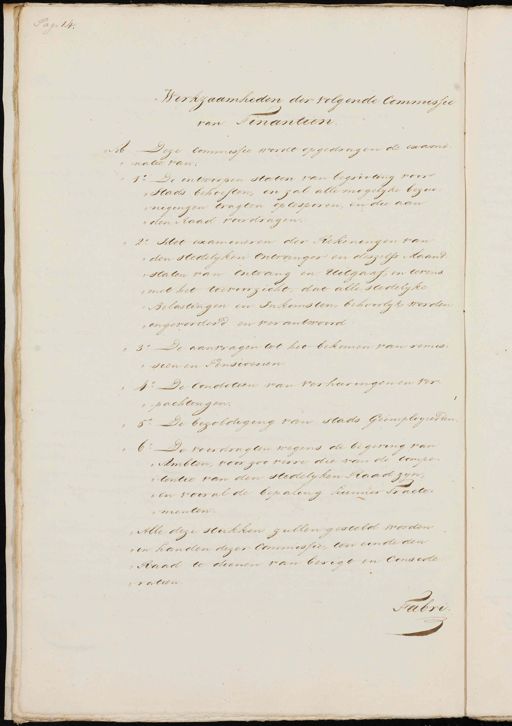 Pag. 14.
Werkzaamheden der volgende Commissie
van Finantien.
Deze Commissie wordt opgedragen de exami
natie van:
1o De ontworpen staten van begrooting voor
stads behoeften, en zal alle mogelyke bezui
nigingen tragten optesporen, en die aan
den Raad voordragen.
2o Het examineren der Rekeningen van
den stedelyken Ontvanger en deszelfs Maand
staten van Ontvang en Uitgaaf, en tevens
met het toevoorzicht dat alle stedelyke
Belastingen en Inkomsten behoorlyk worden
ingevorderd en verantwoord
3o De aanvragen tot het bekomen van remis
sien en Pensioenen
4o De Conditien van verhuringen en ver
pachtingen.
5o De bezoldiging van stads Geemployeerden.
6o De voordragten wegens de begeving van
Ambten, voor zoo verre die van de compe
tentie van den stedelyken Raad zyn,
en vooral de bepaling hunner Tracte
menten.
Alle deze stukken zullen gesteld worden
in handen dezer Commissie, ten einde den
Raad te dienen van berigt en Conside
ratien
Fabri.